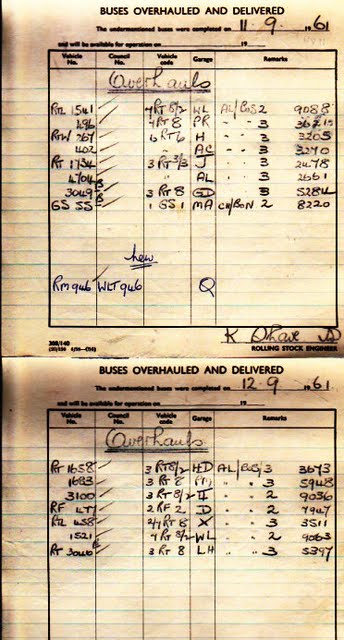 BUSES OVERHAULED AND DELIVERED
The undermentioned buses were completed on 11.9.1961
and will be available for operation on 19
Vehicle No. Council No. Vehicle code Garage Remarks
Overhauls
RTL 1541 4RT8/2 WL AL/BUS 2 9088
496 4RT8 PR " " 3
RTW 267 6RT6 H " " 3 3205
402 AC " " 3 3270
RT 1754 3RT3/3 J " " 3 2478
4704 AL " " 3 2661
3049 3 RT 8 GD " " 3
GS 55 1 GS 1 MA 2 8220
new
RM946 WLT946 Q
ROLLING STOCK ENGINEER
BUSES OVERHAULED AND DELIVERED
The undermentioned buses were completed on 12.9.1961
and will be available for operation on 19
Vehicle No. Council No. Vehicle code Garage Remarks
Overhauls
RT 1658 3 RT8/2 HD AL/BUS/3 3673
1683 3 RT 8 " " 3 5948
3100 3 RT 8/2 " " 2 9036
RF 477 2RF 2 D " " 2 7947
RTL 458 2/4RT 8 X " " 3 3511
1521 4 RT 8/2 WL " " 2 9063
RT 3046 3 RT 8 LH " " 3 5397